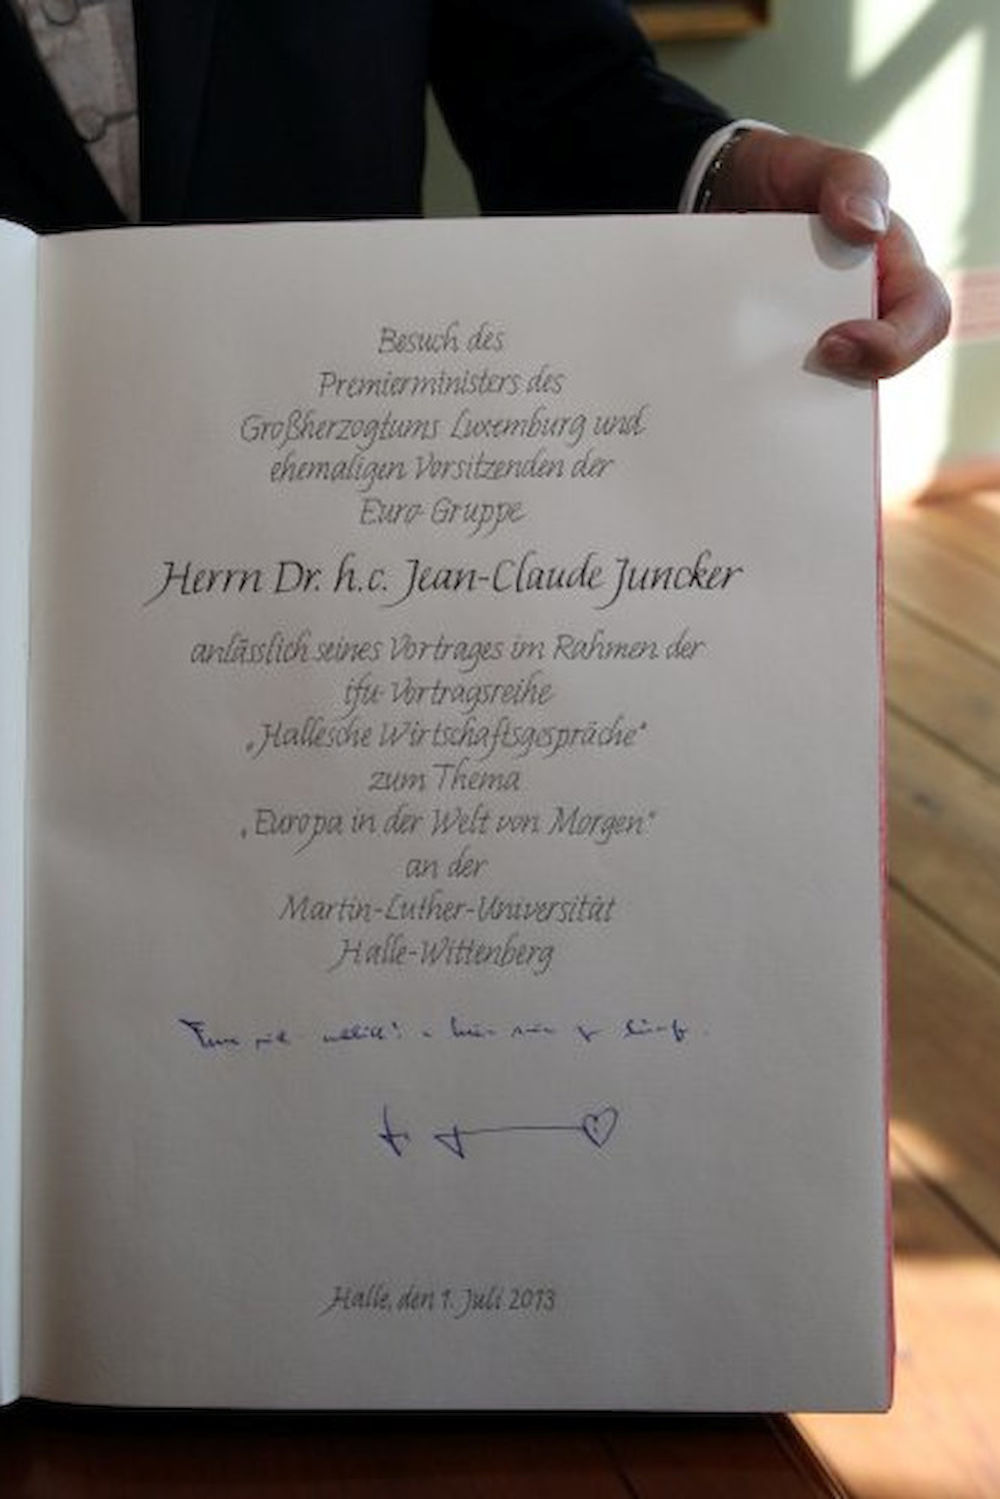 Besuch des
Premierministers des
Großherzogtums Luxemburg und
ehemaligen Vorsitzenden der
Euro-Gruppe
Herrn Dr. h.c. Jean-Claude Juncker
anlässlich seines Vortrages im Rahmen der
ifu-Vortragsreihe
„Hallesche Wirtschaftsgespräche“
zum Thema
„Europa in der Welt von Morgen“
an der
Martin-Luther-Universität
Halle-Wittenberg
Halle, den 1. Juli 2013